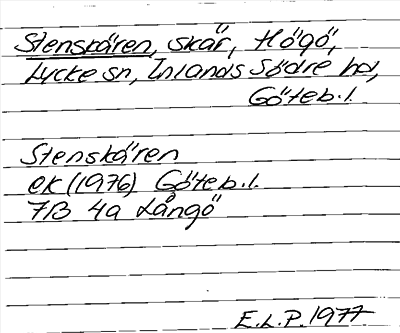 Stenskären, skär, Högö,
Lycke sn, Inlands Södre hd,
Göteb. l.
Stenskären
ek (1976) Göteb. l.
7B 4a Långö
E.L.P. 1977